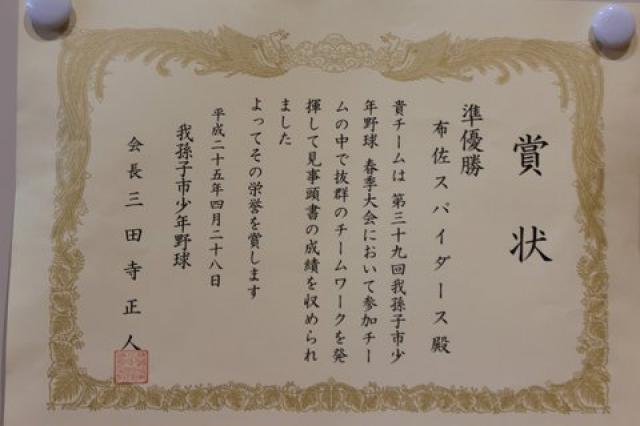 賞状
準優勝
布佐スパイダース殿
貴チームは 第三十九回我孫子市少
年野球 春季大会において参加チー
ムの中で抜群のチームワークを発
揮して見事頭書の成績を収められ
ました
よってその栄誉を賞します
平成二十五年四月二十八日
我孫子市少年野球
会長 三田寺正人